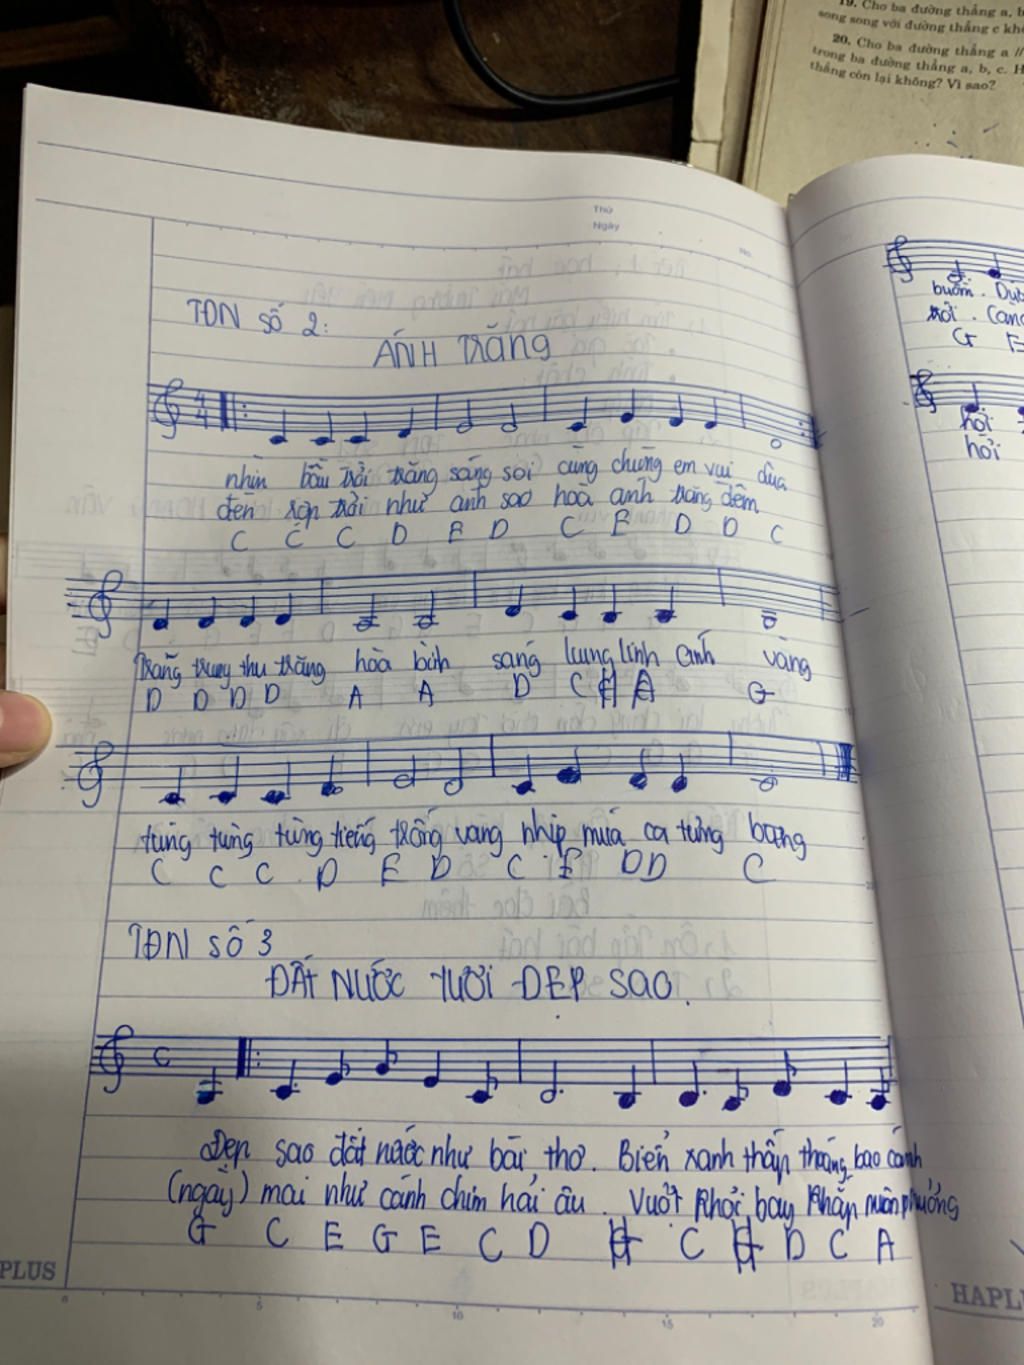 19. Cho ba đường thẳng a, b
song song với đường thẳng c
20. Cho ba đường thẳng a //
trong ba đường thẳng a, b, c. H
thẳng còn lại không? Vì sao?
Thứ
Ngày
No.
TĐN số 2:
ÁNH TRĂNG
4
4
nhìn bầu trời trăng sáng soi cùng chúng em vui đùa
đèn rợp trời như ánh sao hoà ánh trăng đêm
C C C D E D C E D D C
Trăng trung thu trăng hòa bình sáng lung linh ánh vàng
D D D D A A D C A G
tùng tùng tùng tiếng trống vang nhịp múa ca tưng bừng
C C C D E D C E D D C
TĐN số 3
ĐẤT NƯỚC TƯƠI ĐẸP SAO
C
Đẹp sao đất nước như bài thơ. Biển xanh thấp thoáng bao cánh
(ngày) mai như cánh chim hải âu. Vượt khơi bay khắp muôn phương
G C E G E C D C D C A
PLUS
0 5 10 15 20
buồm. Dựa
G E
hỏi
HAPL